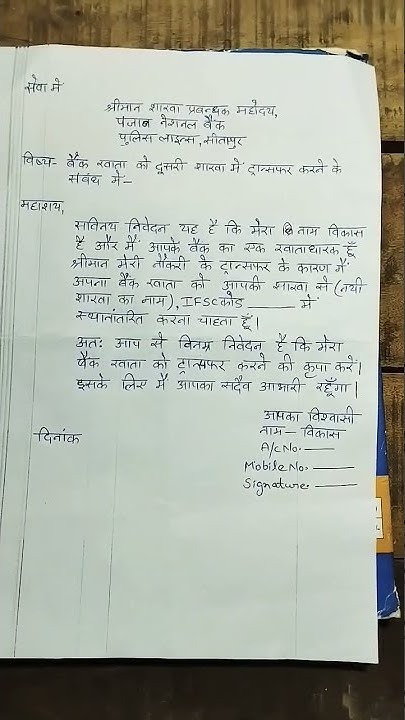 सेवा में
श्रीमान शाखा प्रबन्धक महोदय,
पंजाब नेशनल बैंक
पुलिस लाइन्स, सीतापुर
विषय- बैंक खाता को दूसरी शाखा में ट्रान्सफर करने के
संबंध में-
महाशय,
सविनय निवेदन यह है कि मेरा नाम विकास
है और मैं आपके बैंक का एक खाताधारक हूँ
श्रीमान मेरी नौकरी के ट्रान्सफर के कारण मैं
अपना बैंक खाता को आपकी शाखा से (नयी
शाखा का नाम), IFSC कोड ______ में
स्थानांतरित करना चाहता हूँ।
अतः आप से विनम्र निवेदन है कि मेरा
बैंक खाता को ट्रान्सफर करने की कृपा करें।
इसके लिए मैं आपका सदैव आभारी रहूँगा।
आपका विश्वासी
नाम - विकास
दिनांक
A/c No. ——
Mobile No. ——
Signature. ——